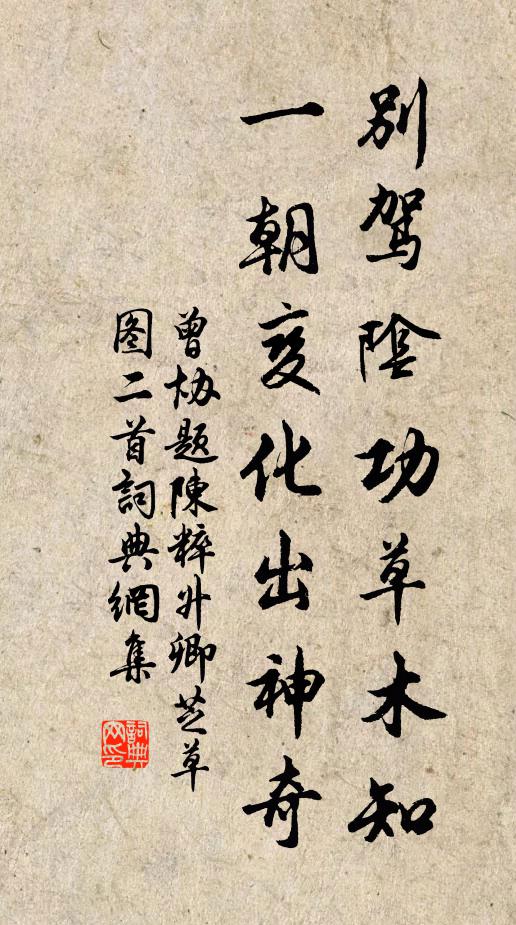 別駕陰功草木知
一朝变化出神奇
曾协题陳粹廾卿芝草
图二首詞典網集
詞典